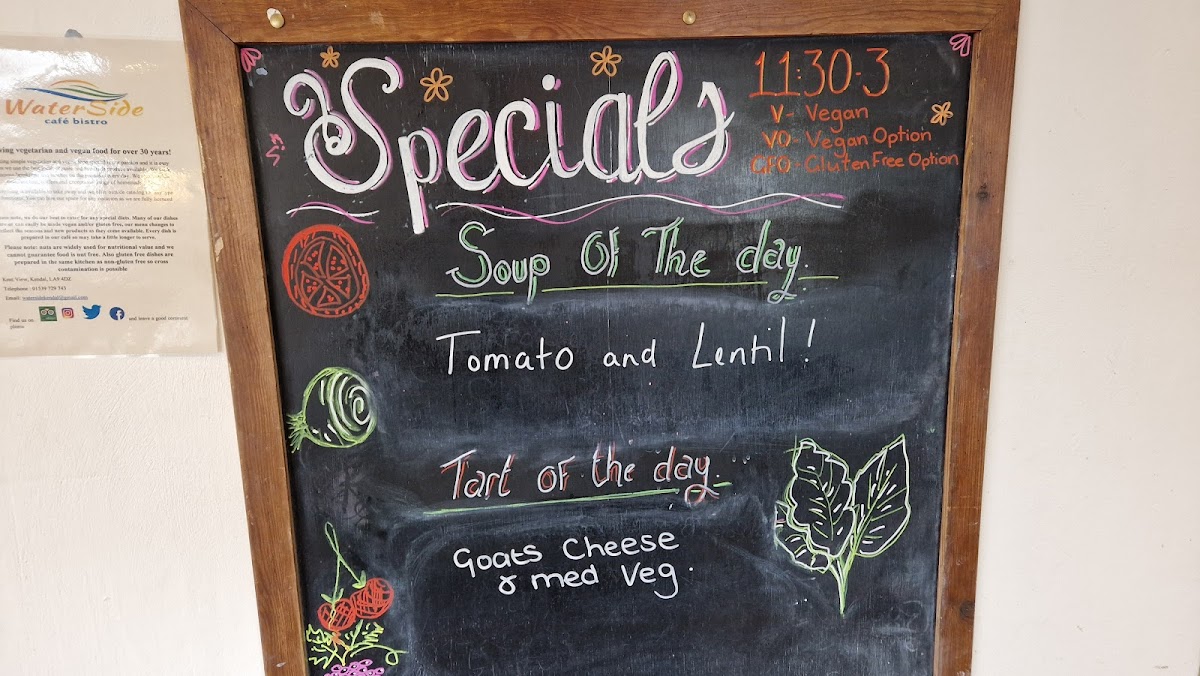 WaterSide
café bistro
ving vegetarian and vegan food for over 30 years!
Please note: nuts are widely used for nutritional value and we
cannot guarantee food is not free. Also gluten free dishes are
prepared in the same kitchen as non-gluten free so cross
contamination is possible
Kent View, Kendal, LA9 4DZ
Telephone: 01539 729 743
Email:
Find us on
and leave a good comment
please
Specials
11:30-3
V- Vegan
VO- Vegan Option
GFO- Gluten Free Option
Soup Of The day.
Tomato and Lentil!
Tart of the day.
Goats Cheese
& med Veg.